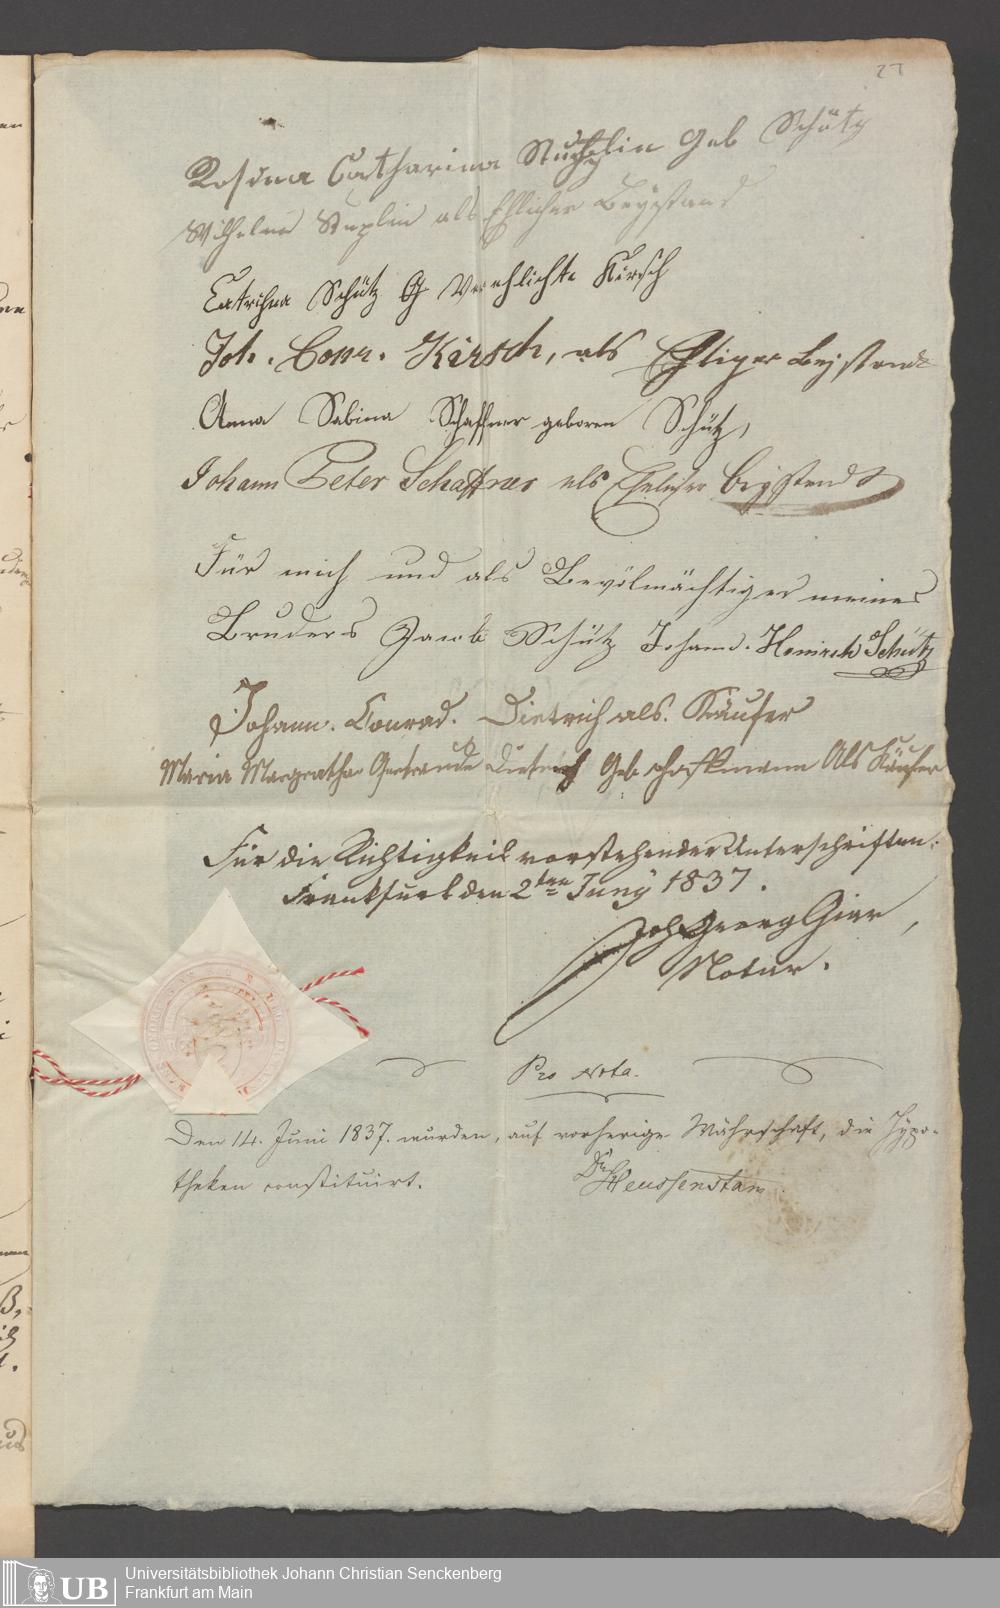 27
Rosina Catharina Stupplin Geb Schütz
Wilhelm Stuplin als Ehlicher Beystand
Catrihna Schütz G Verehlichte Kirsch
Joh. Conr. Kirsch, als Ehliger Beystand
Anna Sabina Schaffner geboren Schütz,
Johann Peter Schaffner als Ehelicher Beystandt
Für mich und als Bevolmächtiger meines
Bruders Jacob Schütz Johann. Heinrich Schütz
Johann. Conrad. Dietrich als. Käufer
Maria Margretha Gertraude Dietrich Geb Hoffmann Als Käufer
Für die Richtigkeit vorstehender Unterschriften:
Frankfurt den 2ten Juny 1837.
Joh Georg Gier,
Notar.
Pro Nota.
Den 14. Juni 1837. wurden, auf vorherige Währschaft, die Hypo-
theken constituirt.
Dr Heussenstam
UB
Universitätsbibliothek Johann Christian Senckenberg
Frankfurt am Main